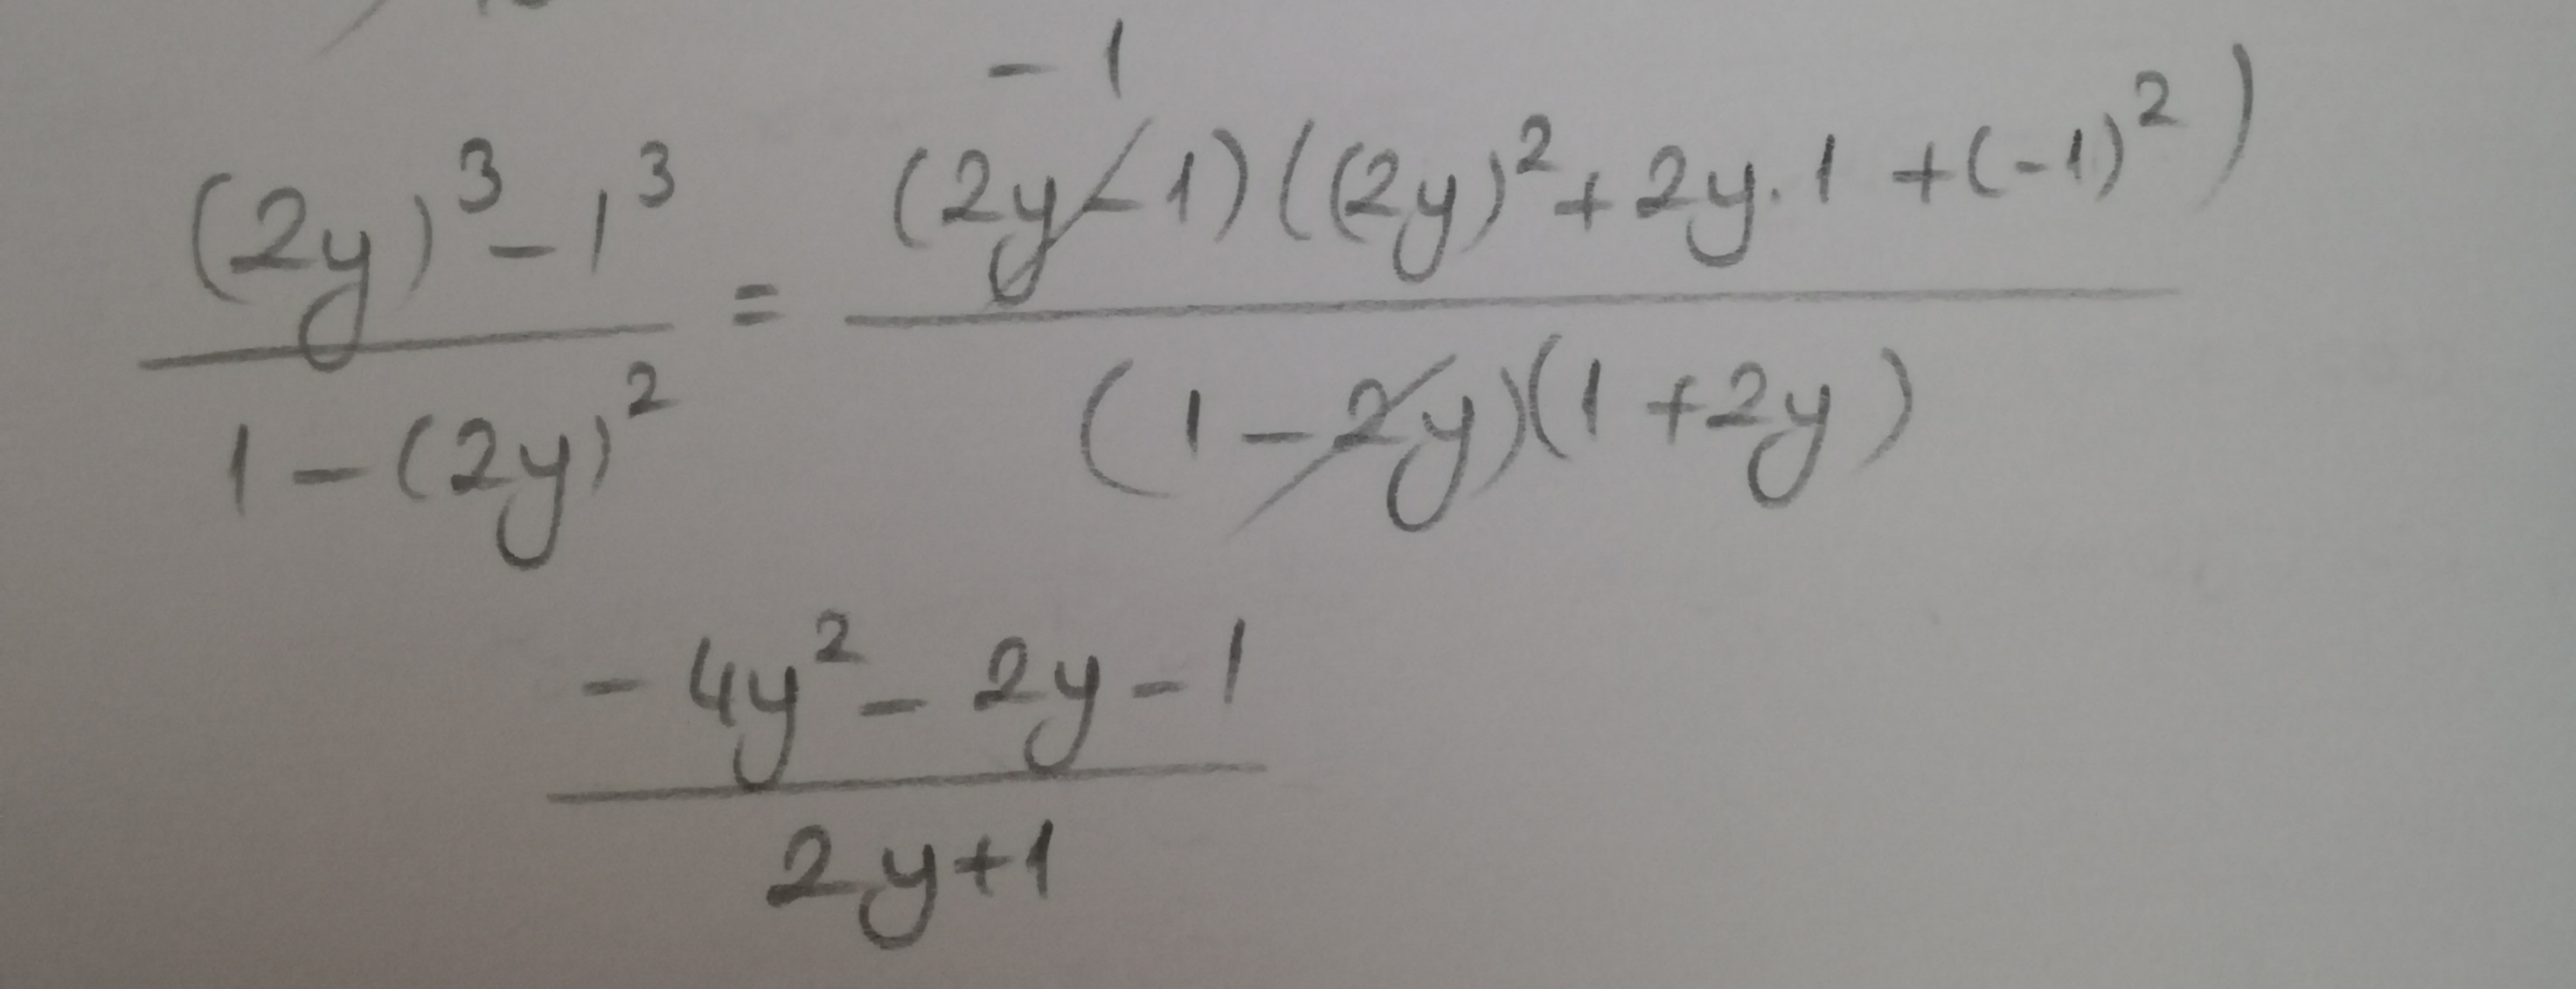 -1
(2y)³-1³ / 1-(2y)² = (2y-1)((2y)²+2y.1+(-1)²) / (1-2y)(1+2y)
-4y²-2y-1 / 2y+1